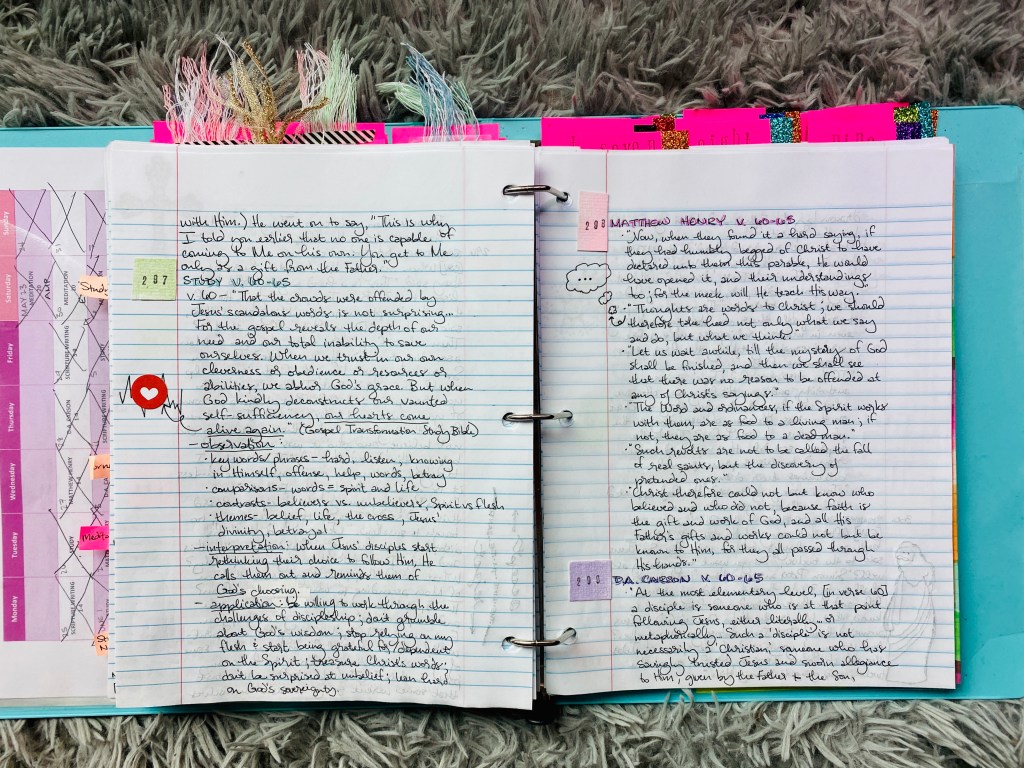 with Him.) He went on to say, "This is why
I told you earlier that no one is capable of
coming to Me on his own. You get to Me
only as a gift from the Father."
287
STUDY V. 60-65
v. 60 - "That the crowds were offended by
Jesus' scandalous words is not surprising...
For the gospel reveals the depth of our
need and our total inability to save
ourselves. When we trust in our own
cleverness or obedience or resources or
abilities, we abhor God's grace. But when
God kindly deconstructs our vaunted
self-sufficiency, our hearts come
alive again." (Gospel Transformation Study Bible)
- observation:
· key words/phrases - hard, listen, knowing
in Himself, offense, help, words, betray
· comparisons - words = spirit and life
· contrasts - believers vs. unbelievers, Spirit vs flesh
· themes - belief, life, the cross, Jesus'
divinity, betrayal
- interpretation: when Jesus' disciples start
rethinking their choice to follow Him, He
calls them out and reminds them of
God's choosing.
- application: be willing to work through the
challenges of discipleship; don't grumble
about God's wisdom; stop relying on my
flesh & start being grateful for/dependent
on the Spirit; treasure Christ's words;
don't be surprised at unbelief; lean hard
on God's sovereignty.
288
MATTHEW HENRY V. 60-65
· "Now, when they found it a hard saying, if
they had humbly begged of Christ to have
declared unto them this parable, He would
have opened it, and their understandings
too; for the meek will He teach His way."
· "Thoughts are words to Christ; we should
therefore take heed not only what we say
and do, but what we think."
· "Let us wait awhile, till the mystery of God
shall be finished, and then we shall see
that there was no reason to be offended at
any of Christ's sayings."
· "The Word and ordinances, if the Spirit works
with them, are as food to a living man; if
not, they are as food to a dead man."
· "Such revolts are not to be called the fall
of real saints, but the discovery of
pretended ones."
· "Christ therefore could not but know who
believed and who did not, because faith is
the gift and work of God, and all His
Father's gifts and works could not but be
known to Him, for they all passed through
His hands."
D.A. CARSON V. 60-65
· "At the most elementary level, [in verse 60]
a disciple is someone who is at that point
following Jesus, either literally... or
metaphorically... Such a 'disciple' is not
necessarily a 'Christian', someone who has
savingly trusted Jesus and sworn allegiance
to Him, given by the Father to the Son,
Sunday
Saturday
Friday
Thursday
Wednesday
Tuesday
Monday
MAY 13
MEDITATION
SCRIPTURE WRITING
MATTHEW HENRY
STUDY
SCRIPTURE WRITING